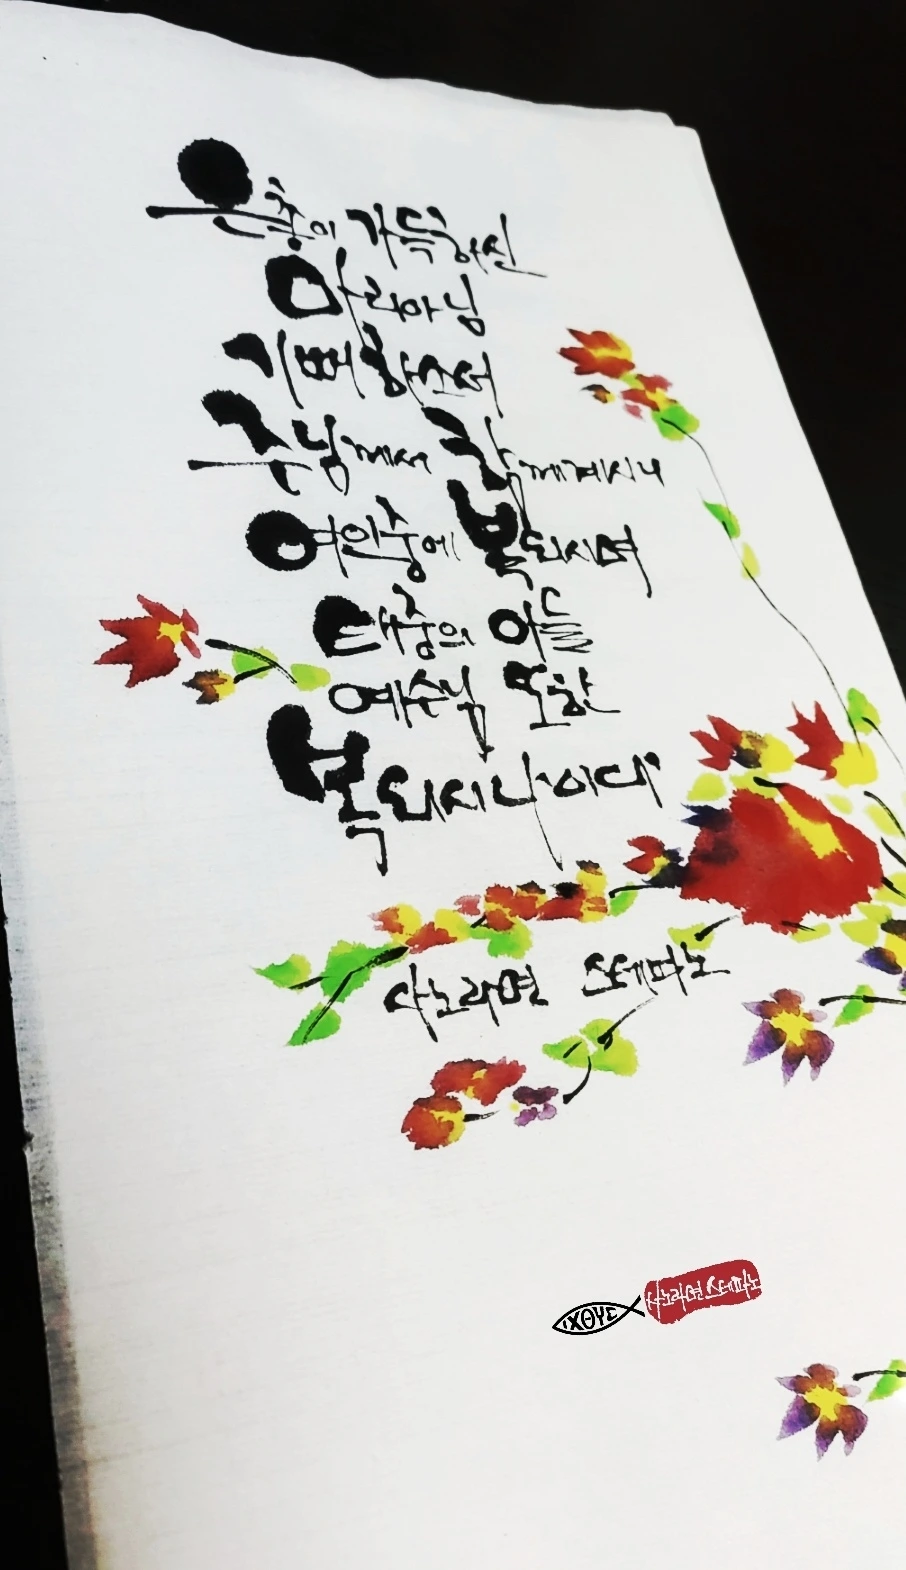 은총이 가득하신
마리아님
기뻐하소서
주님께서 함께계시니
여인중에 복되시며
태중의 아들
예수님 또한
복되시나이다
사노라면 스테파노
ΙΧΘΥΣ
사노라면 스테파노